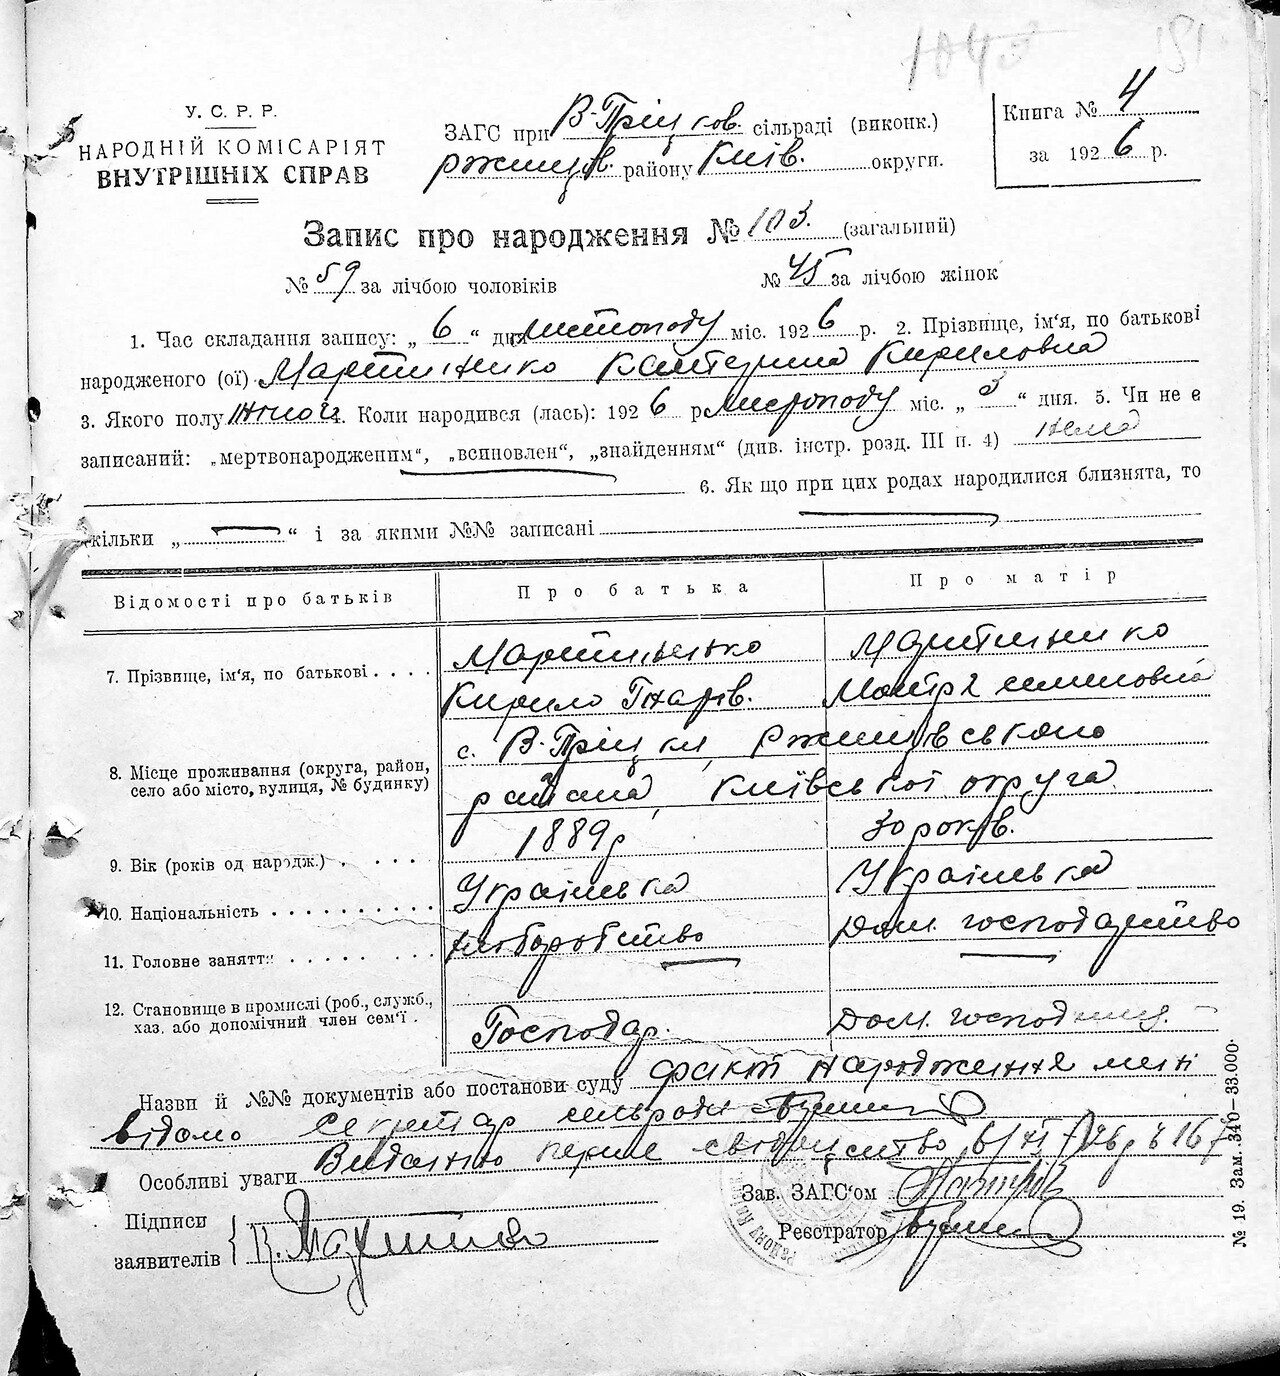 У. С. Р. Р.
НАРОДНІЙ КОМІСАРІЯТ
ВНУТРІШНІХ СПРАВ
ЗАГС при В-Пріцков. сільраді (виконк.)
Ржищів. району Київ. округи.
Книга № 4
за 1926 р.
Запис про народження № 103. (загальний)
№ 59 за лічбою чоловіків № 45 за лічбою жінок
1. Час складання запису: „ 6 “ дня листопаду міс. 1926 р. 2. Прізвище, ім'я, по батькові
народженого (ої) Мартиненко Катерина Кириловна
3. Якого полу жіноч. 4. Коли народився (лась): 1926 р. листопаду міс. „ 3 “ дня. 5. Чи не є
записаний: „мертвонародженим“, „всиновлен“, „знайденням“ (див. інстр. розд. III п. 4) нема
6. Як що при цих родах народилися близнята, то
скільки „ — “ і за якими №№ записані
Відомості про батьків Про батька Про матір
7. Прізвище, ім'я, по батькові . . . . Мартиненко Мартиненко
Кирило Гнатів. Мотря Семиновна
8. Місце проживання (округа, район,
село або місто, вулиця, № будинку)
с. В-Пріцки, Ржищівського
района, Київської округа
9. Вік (років од народж.) . . . . . 1889 р 30 років.
10. Національність . . . . . . . . . . Українська Українська
11. Головне заняття . . . . . . . . хліборобство Дом. господарство
12. Становище в промислі (роб., служб.,
хаз. або допомічний член сем'ї . Господар. Дом. господиц.
Назви й №№ документів або постанови суду факт народження мені
відомо Секретар сільради
Особливі уваги Видатно перше свідоцтво 6/XI 26 р № 167
Підписи
заявителів
К. Мартинен
Зав. ЗАГС'ом
Реєстратор
№ 19. Зам. 340—33.000.